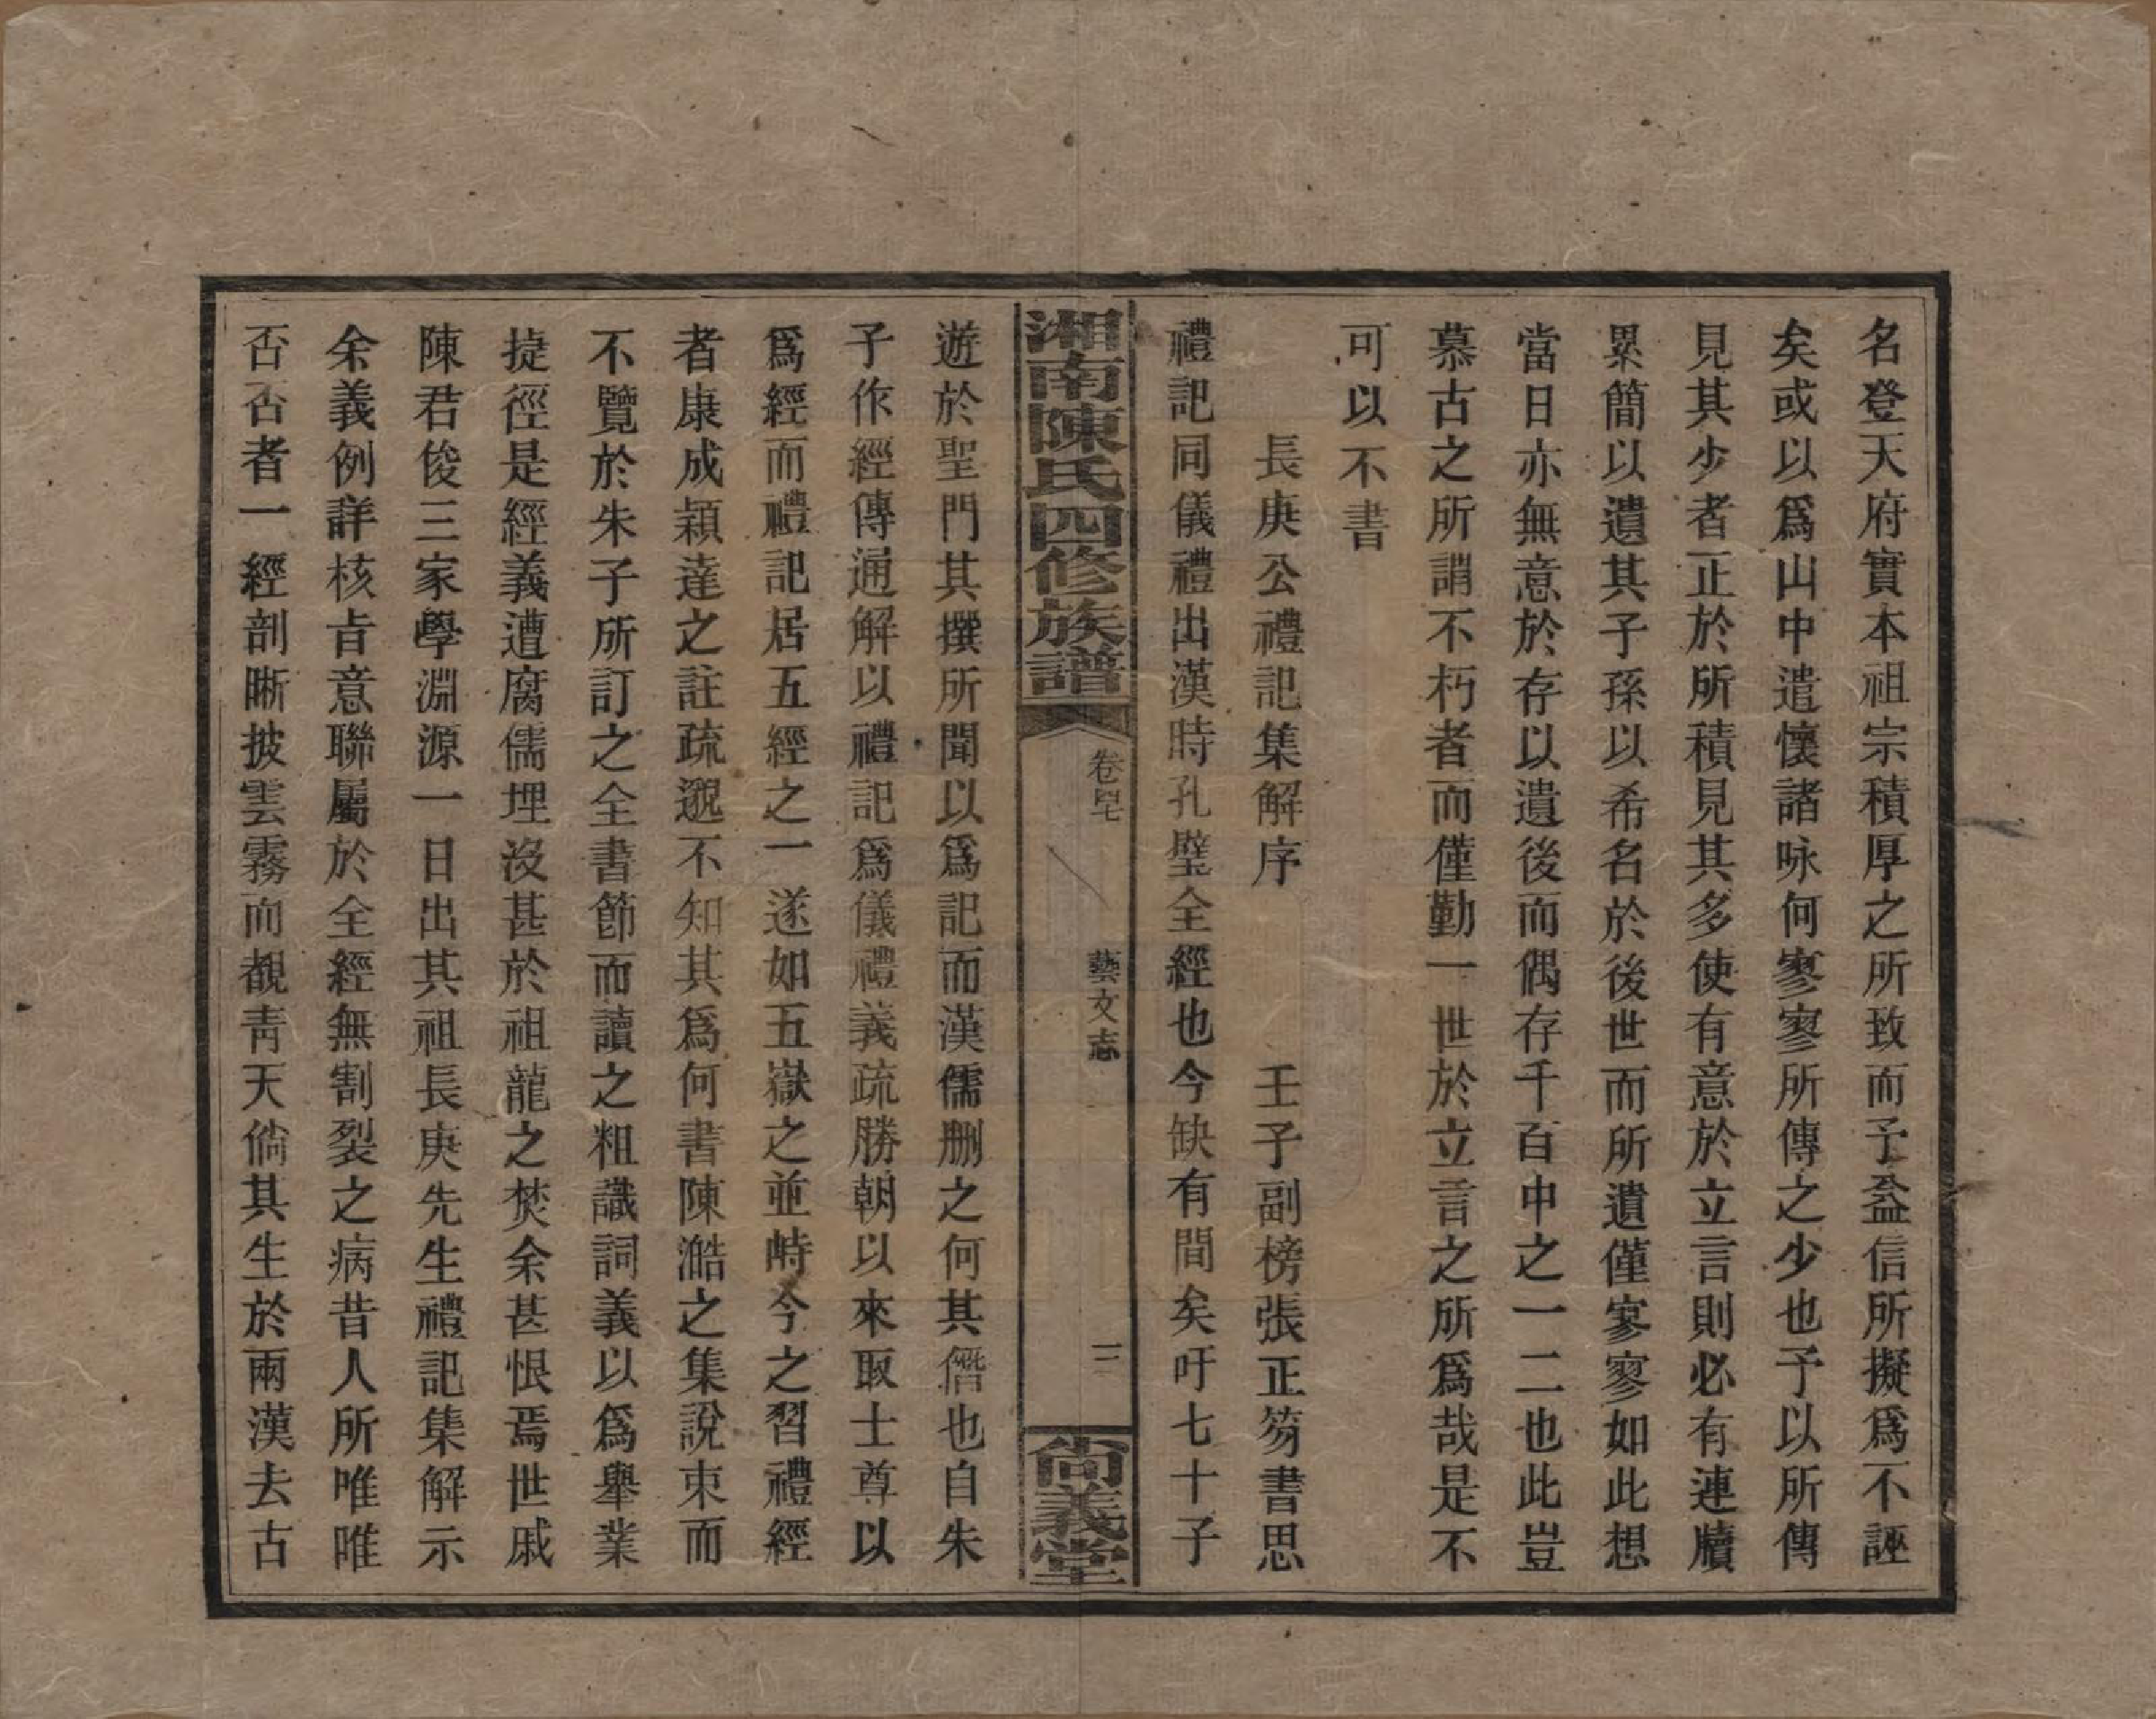 名登天府實本祖宗積厚之所致而予益信所擬爲不誣
矣或以爲山中遣懷諸咏何寥寥所傳之少也予以所傳
見其少者正於所積見其多使有意於立言則必有連牘
累簡以遺其子孫以希名於後世而所遺僅寥寥如此想
當日亦無意於存以遺後而偶存千百中之一二也此豈
慕古之所謂不朽者而僅勤一世於立言之所爲哉是不
可以不書
長庚公禮記集解序 壬子副榜張正笏書思
禮記同儀禮出漢時孔壁全經也今缺有間矣吁七十子
湘南陳氏四修族譜 卷四七 藝文志 三 尙義堂
遊於聖門其撰所聞以爲記而漢儒刪之何其僭也自朱
子作經傳通解以禮記爲儀禮義疏勝朝以來取士尊以
爲經而禮記居五經之一遂如五嶽之並峙今之習禮經
者康成穎達之註疏邈不知其爲何書陳澔之集說束而
不覽於朱子所訂之全書節而讀之粗識詞義以爲舉業
捷徑是經義遭腐儒埋沒甚於祖龍之焚余甚恨焉世戚
陳君俊三家學淵源一日出其祖長庚先生禮記集解示
余義例詳核㫖意聯屬於全經無割裂之病昔人所唯唯
否否者一經剖晰披雲霧而覩靑天倘其生於兩漢去古